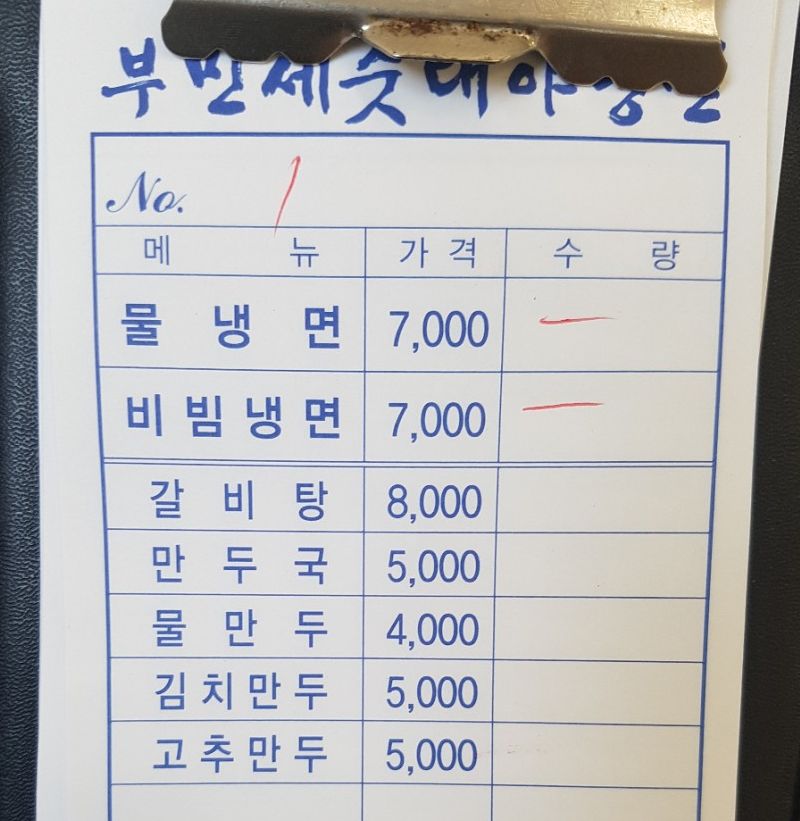 부민세숫대야냉면
No. 1
메뉴 가격 수량
물냉면 7,000 一
비빔냉면 7,000 一
갈비탕 8,000
만두국 5,000
물만두 4,000
김치만두 5,000
고추만두 5,000